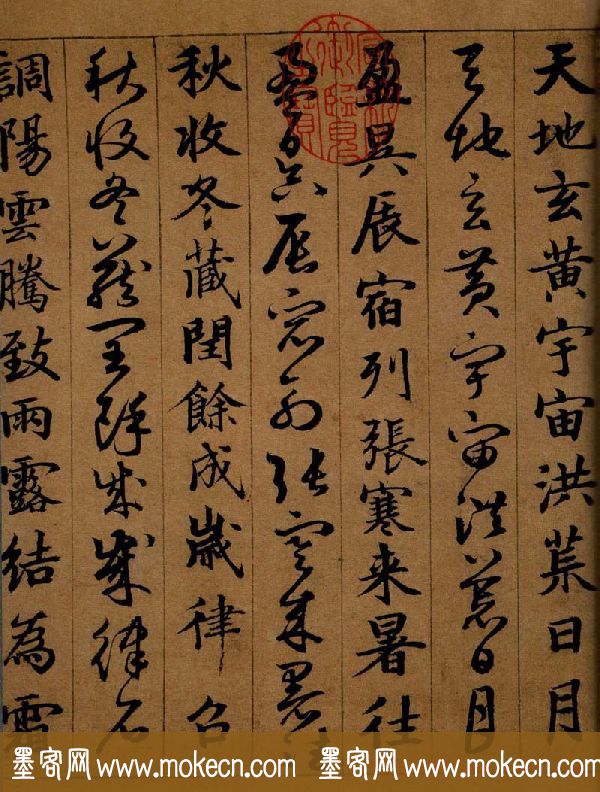 天地玄黄宇宙洪荒日月
天地玄黄宇宙洪荒日月
盈昃辰宿列張寒来暑往
盈昃辰宿列張寒来暑往
秋收冬藏閏餘成歲律召
秋收冬藏閏餘成歲律召
調陽雲騰致雨露結為霜
墨客网 www.mokecn.com 墨客网 www.mokecn.com